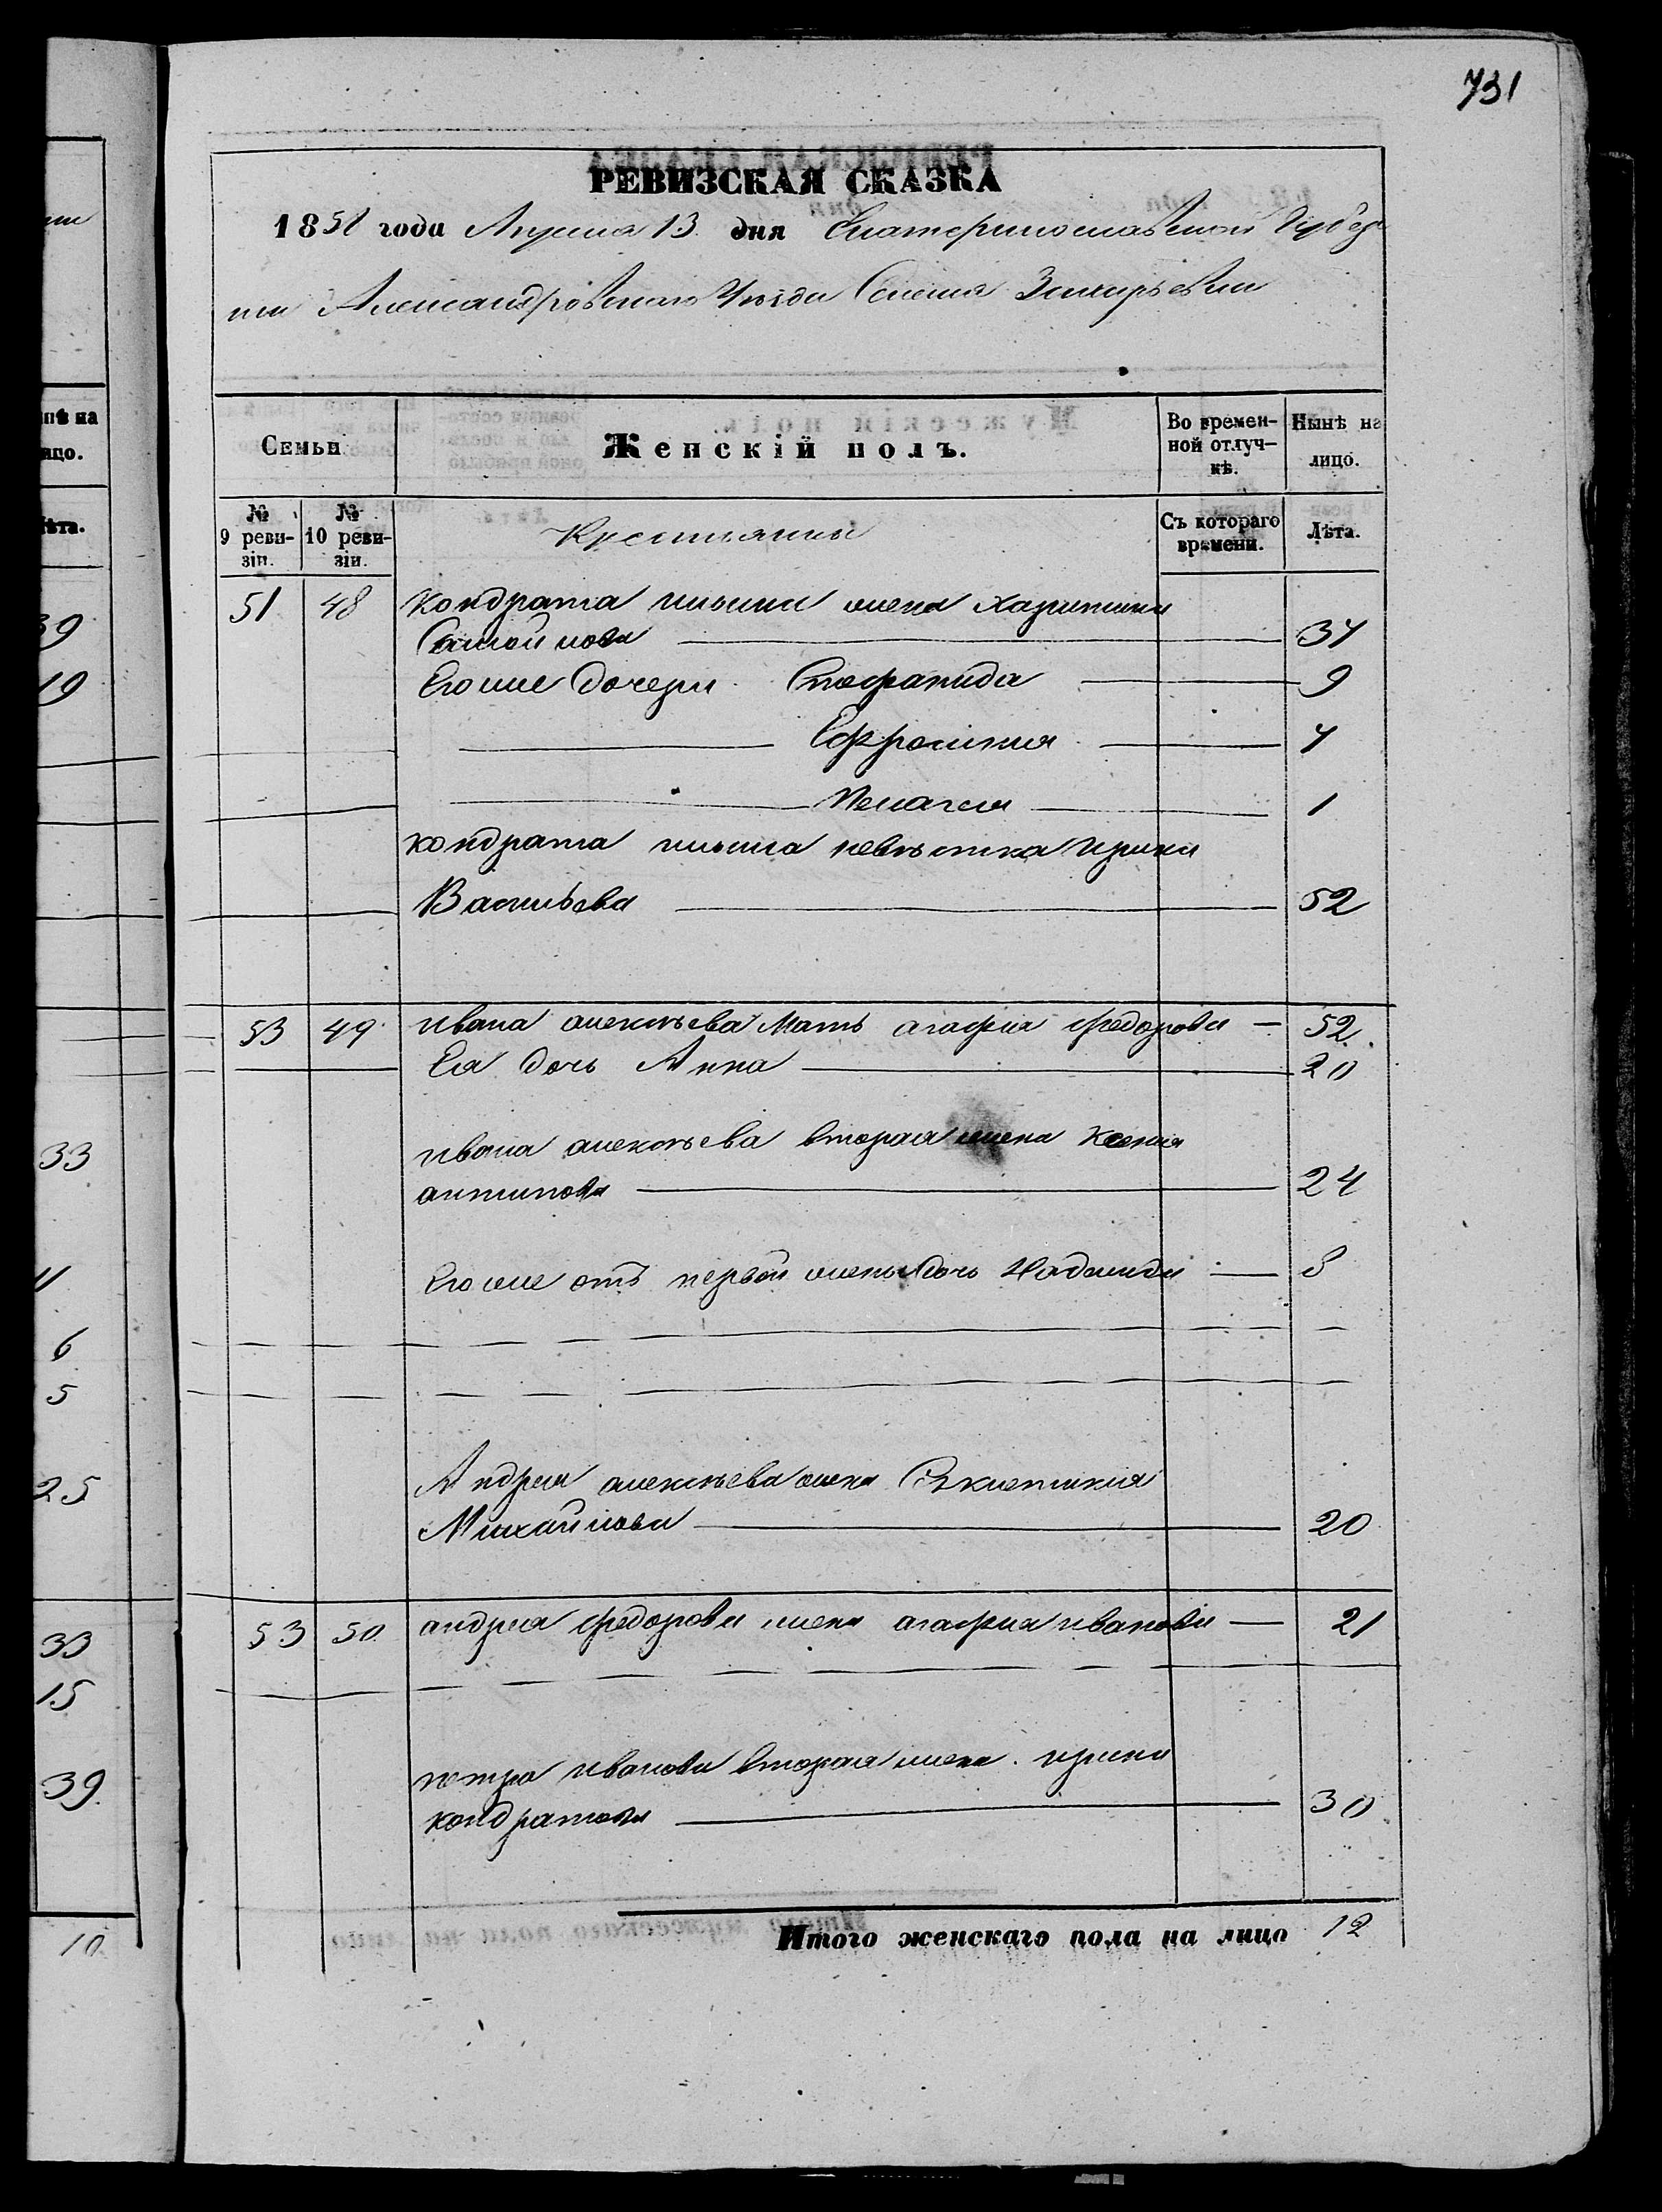 731
РЕВИЗСКАЯ СКАЗКА
1858 года Апреля 13 дня Екатеринославской Губер
нии Александровского Уезда Селения Захарьевки
Семьи
Женскiй полъ.
Во времен-
ной отлуч-
кѣ.
Нынѣ на
лицо.
№
9 реви-
зiи.
№
10 реви-
зiи.
Крестьянки
Съ котораго
времени.
Лѣта.
51 48 Кондрата Ильина жена Харитина
Самойлова 37
Его же дочери Стефанида 9
Ефросиния 7
Пелагея 1
Кондрата Ильина невѣстка Ирина
Васильева 52
53 49 Ивана Алексѣева Мать Агафия Федорова 52
Ея дочь Анна 20
Ивана Алексѣева вторая жена Ксения
Антипова 24
Его же отъ первой жены дочь Надежда 8
Андрея Алексѣева жена
Михайлова 20
53 50 Андрея Федорова жена Агафия Иванова 21
Петра Иванова вторая жена Ирина
Кондратова 30
Итого женскаго пола на лицо 12
нѣ на
ицо.
ѣта.
39
19
33
11
6
5
25
33
15
39
10